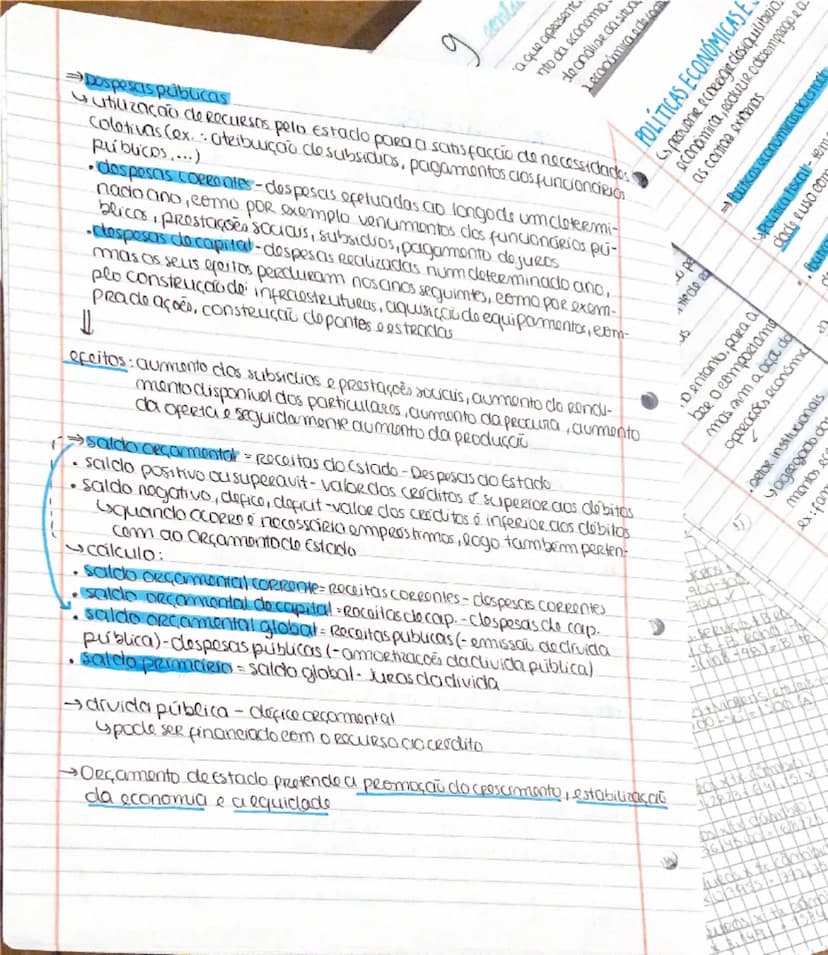 ⇒ Despesas públicas
↳ utilização de recursos pelo Estado para a satisfação de necessidades
coletivas (ex.: atribuição de subsídios, pagamentos aos funcionários
públicos, ...)
• despesas correntes - despesas efetuadas ao longo de um determi-
nado ano, como por exemplo vencimentos dos funcionários pú-
blicos, prestações sociais, subsídios, pagamento de juros
• despesas de capital - despesas realizadas num determinado ano,
mas os seus efeitos perduram nos anos seguintes, como por exem-
plo construção de infraestruturas, aquisição de equipamentos, com-
pra de ações, construção de pontes e estradas
⇓
efeitos: aumento dos subsídios e prestações sociais, aumento do rendi-
mento disponível dos particulares, aumento da procura, aumento
da oferta e seguidamente aumento da produção
⇒ saldo orçamental = Receitas do Estado - Despesas do Estado
• saldo positivo ou superavit - valor dos créditos é superior aos débitos
• saldo negativo, défice, deficit - valor dos créditos é inferior aos débitos
↳ quando ocorre é necessário empréstimos, logo também perten-
cem ao Orçamento do Estado
↳ cálculo:
• saldo orçamental corrente = Receitas correntes - despesas correntes
• saldo orçamental de capital = Receitas de cap. - despesas de cap.
• saldo orçamental global = Receitas públicas (- emissão de dívida
pública) - despesas públicas (- amortizações da dívida pública)
• saldo primário = saldo global - juros da dívida
→ dívida pública - défice orçamental
↳ pode ser financiado com o recurso ao crédito
→ Orçamento de Estado pretende a promoção do crescimento, estabilização
da economia e a equidade
9
a que apresenta
nto da economia.
POLÍTICAS ECONÓMICAS E
↳ prevenir e corrigir desequilíbrio
económica, reduzir desemprego e a
as contas externas
o entanto, para a
mas sim a
operações económic
setor institucionais
agregado do